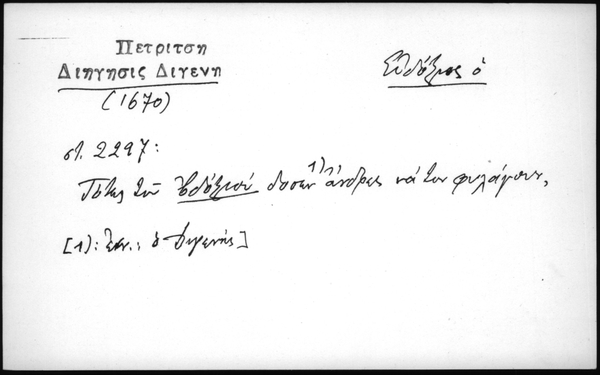 Πετριτση
Διηγησις Διγενη
(1670)
Εὐδόξιος ὁ
στ. 2297:
Τότες τοῦ Εὐδοξιοῦ 1) ἄνδρες νὰ τον φυλάγουν,
[1): ὁ Διγενής]